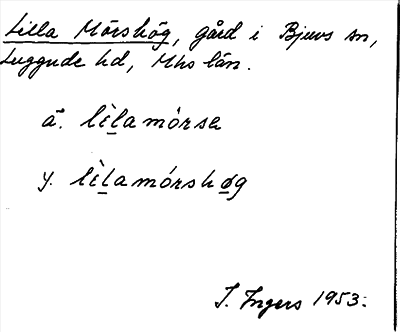 Lilla Mörshög, gård i Bjuvs sn,
Luggude hd, Mhs län.
ä. lèlamórsa
y. lèlamórshøg
I. Ingers 1953.